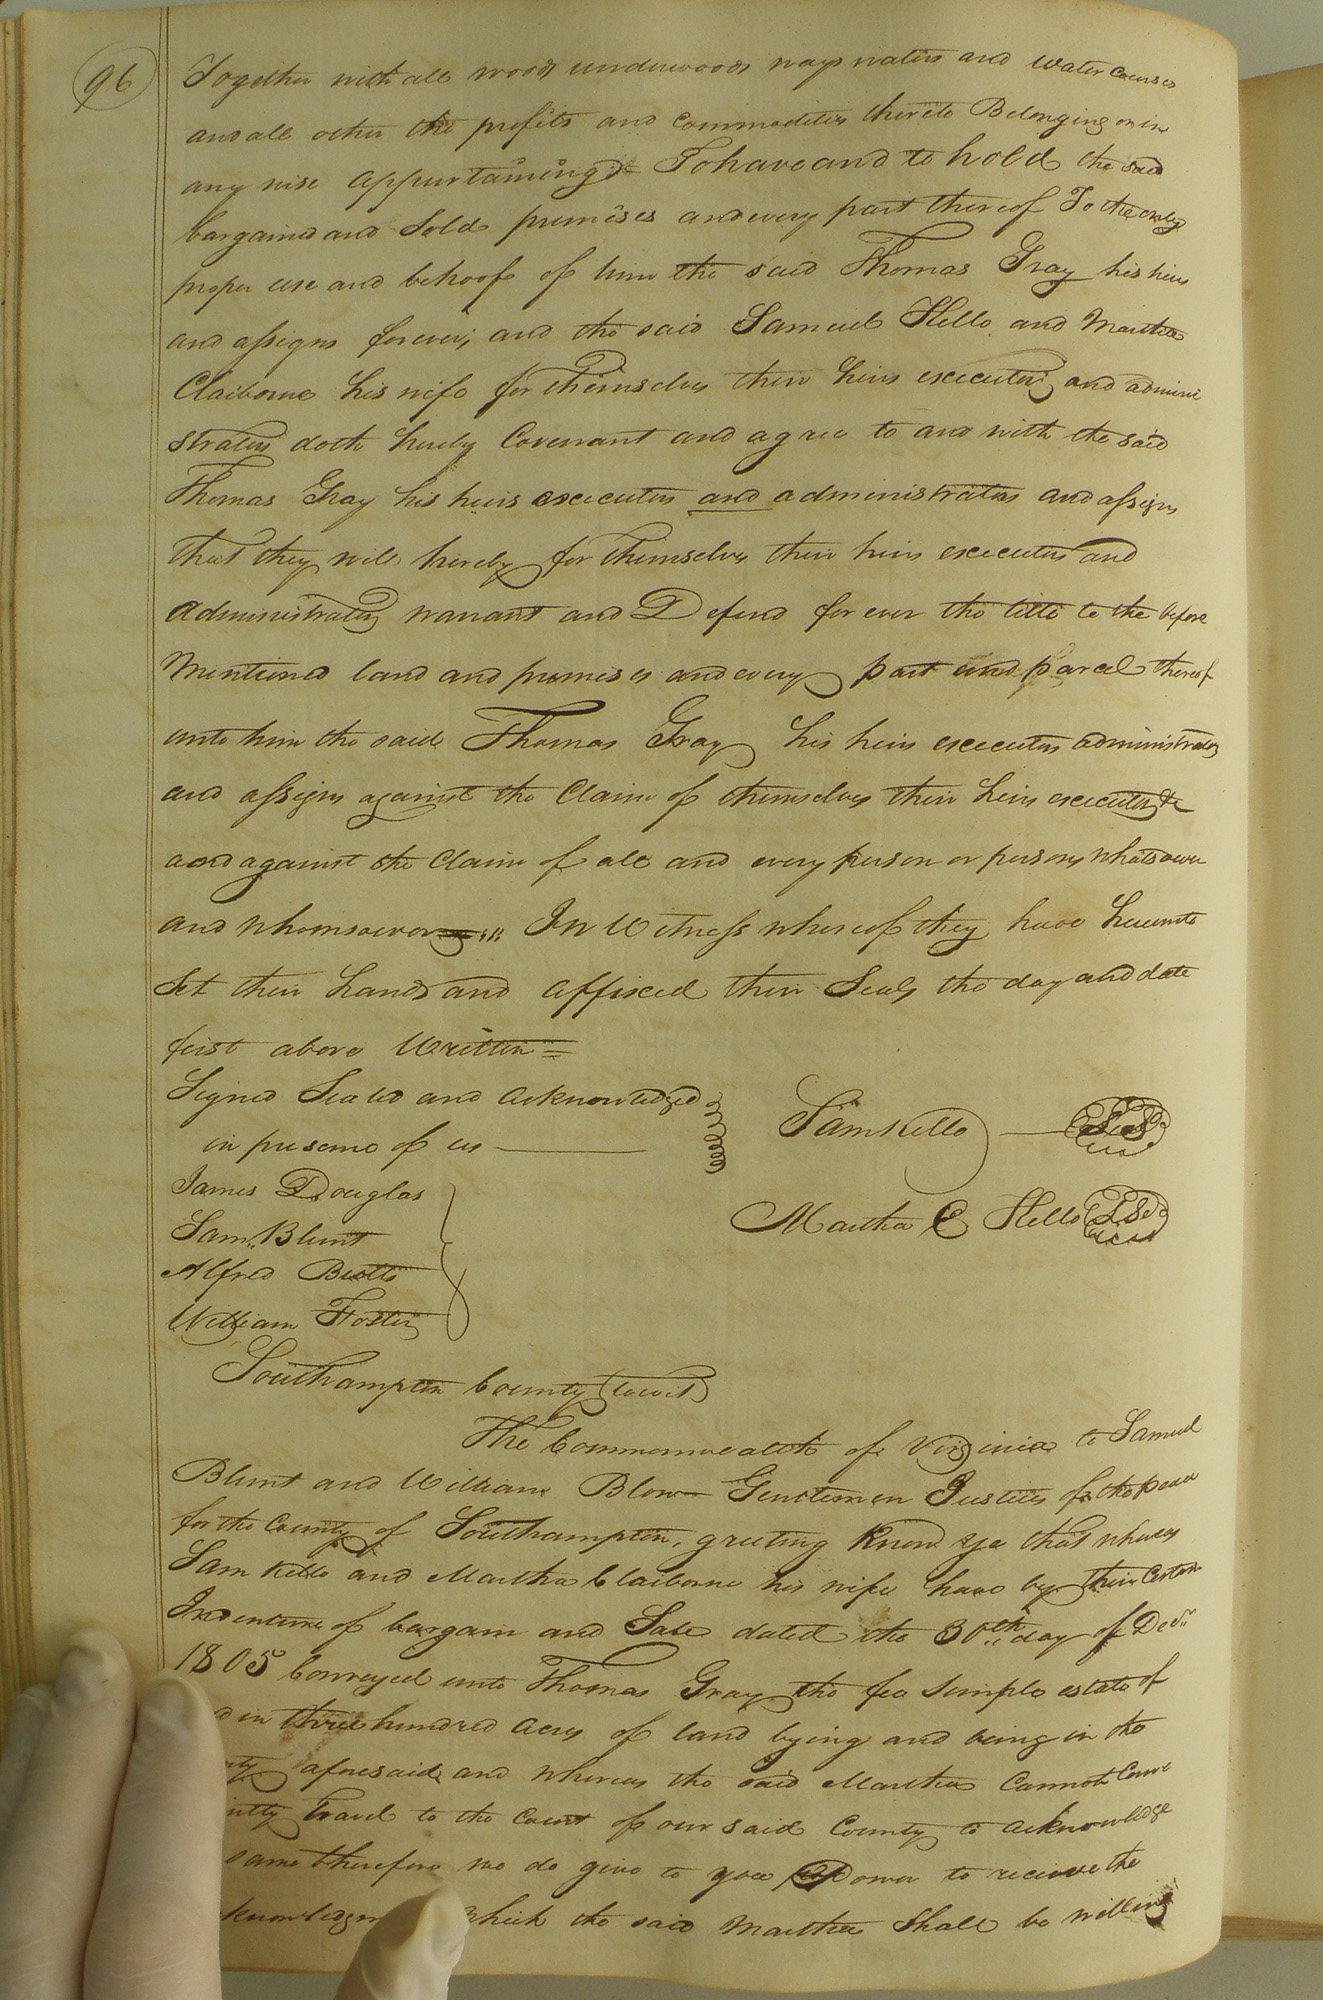 96
Together with all woods underwoods ways waters and Water Courses
and all other the profits and Commodities thereto Belonging or in
any wise Appurtaining To have and to hold the said
bargained and Sold premises and every part thereof To the only
proper use and behoofe of him the said Thomas Gray his heirs
and assigns forever, and the said Samuel Kello and Martha
Claiborne his wife for themselves their heirs executors and admini
strators doth hereby Covenant and agree to and with the said
Thomas Gray his heirs executors and administrators and assigns
that they will hereby for themselves their heirs executors and
Administrators warrant and Defend for ever the title to the before
Mentioned land and premises and every part and parcel thereof
unto him the said Thomas Gray his heirs executors administrators
and assigns against the Claim of themselves their heirs executors &c
and against the Claim of all and every person or persons whatsoever
and whomsoever In Witness whereof they have hereunto
Set their hands and affixed their Seals the day and date
first above Written =
Signed Sealed and acknowledged
in presence of us
Sam Kello LS
James Douglas
Martha C Kello LS
Sam. Blunt
Alfred Butts
William Foster
Southampton County (towit)
The Commonwealth of Virginia to Samuel
Blunt and William Blow Gentlemen Justices of the peace
for the County of Southampton, greeting Know ye that whereas
Sam Kello and Martha Claiborne his wife have by their Certain
Indenture of bargain and Sale dated the 30th day of Decr
1805 Conveyed unto Thomas Gray the fee Simple estate of
in three hundred acres of land lying and being in the
aforesaid and whereas the said Martha Cannot Conve
travel to the Court of our said County to acknowledge
same therefore we do give to you Power to receive the
which the said Martha Shall be willing